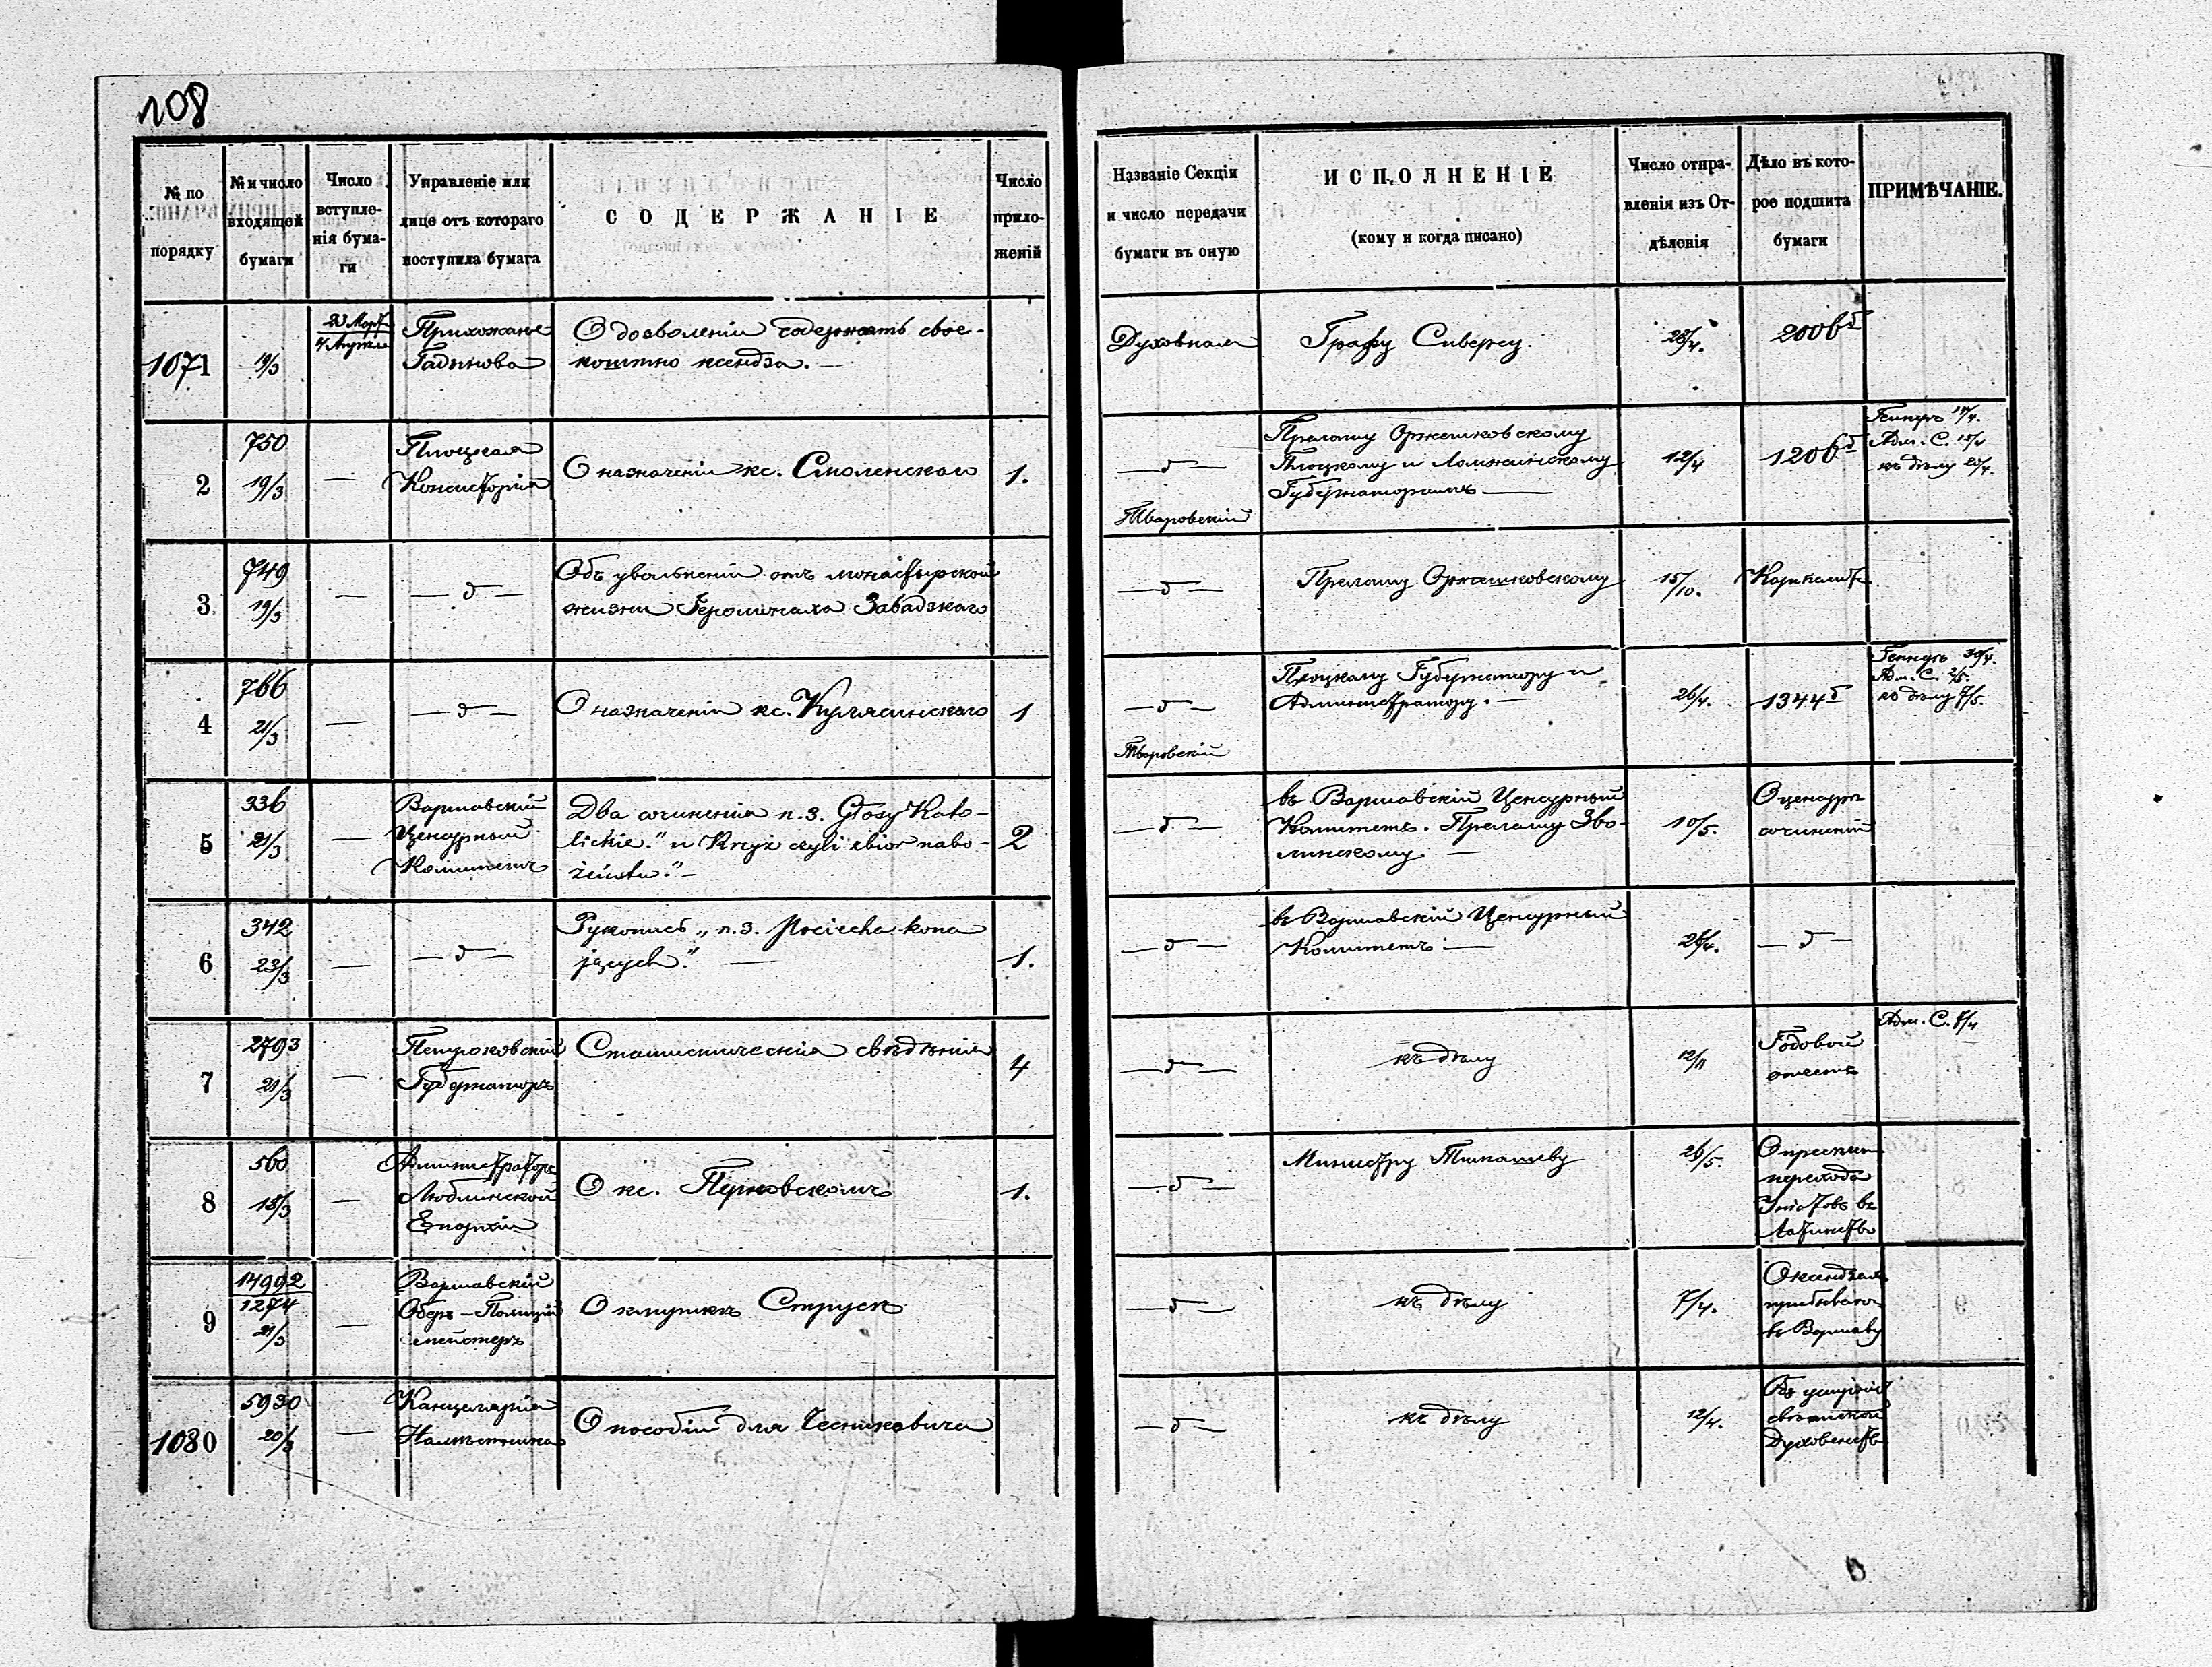 108
№ по порядку
№ и число входящей бумаги
Число вступле-нія бума-ги
Управленіе или лице отъ котораго поступила бумага
СОДЕРЖАНІЕ
Число прило-женій
Названіе Секціи и число передачи бумаги въ оную
ИСПОЛНЕНІЕ
(кому и когда писано)
Число отпра-вленія изъ От-дѣленія
Дѣло въ кото-рое подшита бумаги
ПРИМѢЧАНІЕ.
1071
19/3
Прихожане
О дозволеніи содержать свое-
коштно ксендза. —
Духовная
Графу Сиверсу.
28/4.
200б
2
750
19/3
—
Плоцкая
Консисторія
О назначеніи кс. Смоленскаго
1.
— д —
Тваровскій
Прелату Оржешковскому
Плоцкому и Ломжинскому
Губернаторамъ —
12/4
120б
Адм. С. 15/4
къ дѣлу 20/4.
3
749
19/3
—
— д —
Объ увольненіи отъ монастырской
жизни Іеромонаха Завадзкаго
— д —
Прелату Оржешковскому
15/10.
4
766
21/3
—
— д —
О назначеніи кс.
1
— д —
Тваровскій
Плоцкому Губернатору и
Администратору. —
26/4.
1344
30/4.
Адм. С. 2/5.
къ дѣлу 7/5.
5
336
21/3
—
Варшавскій
Цензурный
Комитетъ
Два сочиненія п. з. Głosy Kato-
lickie." и Krzyż czyli zbior nabo-
żeństw." —
2
— д —
въ Варшавскій Цензурный
Комитетъ. Прелату Зво-
линскому. —
10/5.
О цензурѣ
сочиненій
6
342
23/3
—
— д —
Рукопись „ п. з. Pociecha kona
jących." —
1.
— д —
въ Варшавскій Цензурный
Комитетъ —
26/4.
— д —
7
2793
21/3
—
Петроковскій
Губернаторъ
Статистическія свѣдѣнія
4
— д —
къ дѣлу
12/11
Годовой
отчетъ
Адм. С. 7/4
8
560
18/3
—
Администраторъ
Люблинской
Епархіи
О кс.
1.
— д —
Министру Тимашеву
26/5.
перехода
Уніатовъ въ
Латинство
9
14992
1274
21/3
—
Варшавскій
Оберъ-Полицій
мейстеръ
О клирикѣ Струсѣ
— д —
къ дѣлу
7/4.
О ксендзахъ
въ Варшаву
1080
5930
20/3
—
Канцелярія
Намѣстника
О пособіи для Чесниковича
— д —
къ дѣлу
12/4.
Духовенств